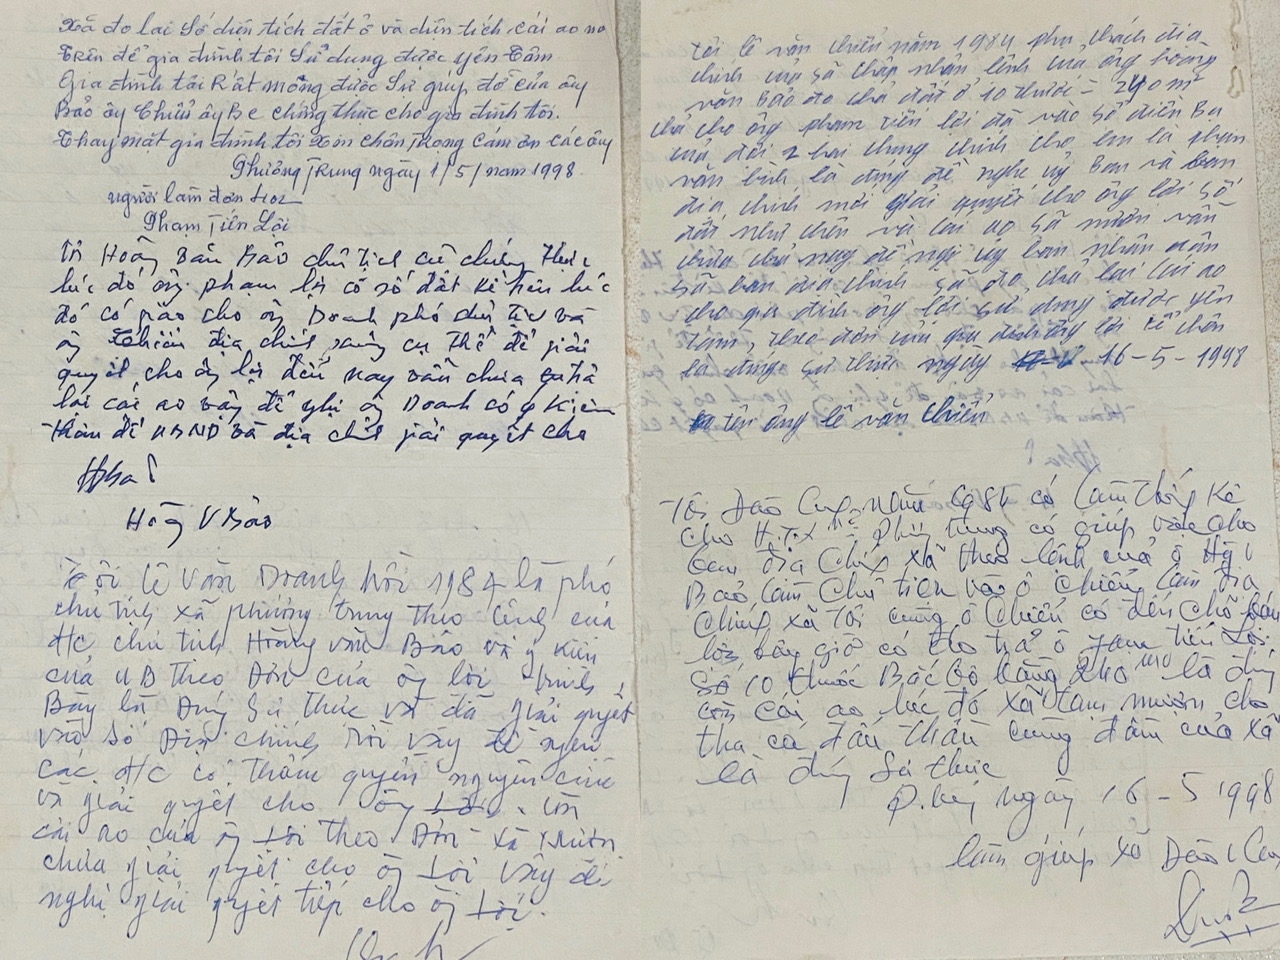 Xã đo lại Số diện tích đất ở và diện tích cái ao nó
trên để gia đình tôi Sử dụng được yên tâm
Gia đình tôi Rất mong được Sự giúp đỡ của ông
Bảo ông Chiển ông Be chứng thức cho gia đình tôi.
Thay mặt gia đình tôi Xin chân trọng cám ơn các ông
Phương Trung ngày 1/5/năm 1998.
người làm đơn
Phạm Tiến Lợi
Tôi Hoàng Văn Bảo chủ tịch cũ chứng thực
lúc đó ông phạm lợi có số đất kê trên lúc
đó có giao cho ông Doanh phó chủ tịch và
ông Chiển địa chính cụ thể để giải
quyết cho ông lợi đến nay vẫn chưa trả
lại cái ao vậy đề nghị ông Doanh có ý kiến
thêm để UBND và địa chính giải quyết cho
Hoàng V Bảo
Tôi Lê Văn Doanh hồi 1984 là phó
chủ tịch xã phương trung theo lệnh của
đ/c chủ tịch Hoàng văn Bảo và ý kiến
của UB theo Đơn của ông lợi trình
Bày là Đúng Sự thực và đã giải quyết
vào Sổ Địa chính rồi vậy đề nghị
các đ/c có thẩm quyền nguyên cứu
và giải quyết cho ông Lợi. còn
cái ao của ông Lợi theo Đơn xã mượn
chưa giải quyết cho ông Lợi vậy đề
nghị giải quyết tiếp cho ông Lợi.
Tôi lê văn chiển năm 1984 phụ chách địa
chính của sã chấp nhận lệnh của ông hoàng
văn Bảo đo chả đất ở 10 thước = 240 m
chả cho ông phạm tiến lợi đã vào Sổ
của đội 2 chứng chính cho em là phạm
văn bình là đúng đề nghị ủy ban và ban
địa chính mới giải quyết cho ông lợi Số
đất như chên và cái ao Sã mượn vẫn
chưa chả nay đề nghị ủy ban nhân dân
Sã ban địa chính Sã đo chả lại cái ao
cho gia đình ông lợi sử dụng được yên
tâm, theo đơn của gia đình ông lợi kể chên
là đúng Sự thực ngày 16-5-1998
tên ông lê văn chiển
Tôi Đào năm 1984 có làm thống kê
cho H.T.X Phương trung có giúp việc cho
ban địa chính xã theo lệnh của ô
Bảo làm chủ tịch và ô chiển làm địa
chính xã tôi cùng ô chiển có đến chỗ
lợi bây giờ có đo trả ô Phạm tiến Lợi
Số 10 thước Bắc bộ bằng 240 m2 là đúng
còn cái ao lúc đó xã tạm mượn cho
thả cá đấu thầu cùng đầm của xã
là đúng Sự thực
P. ngày 16-5 1998
làm giúp xã Đào